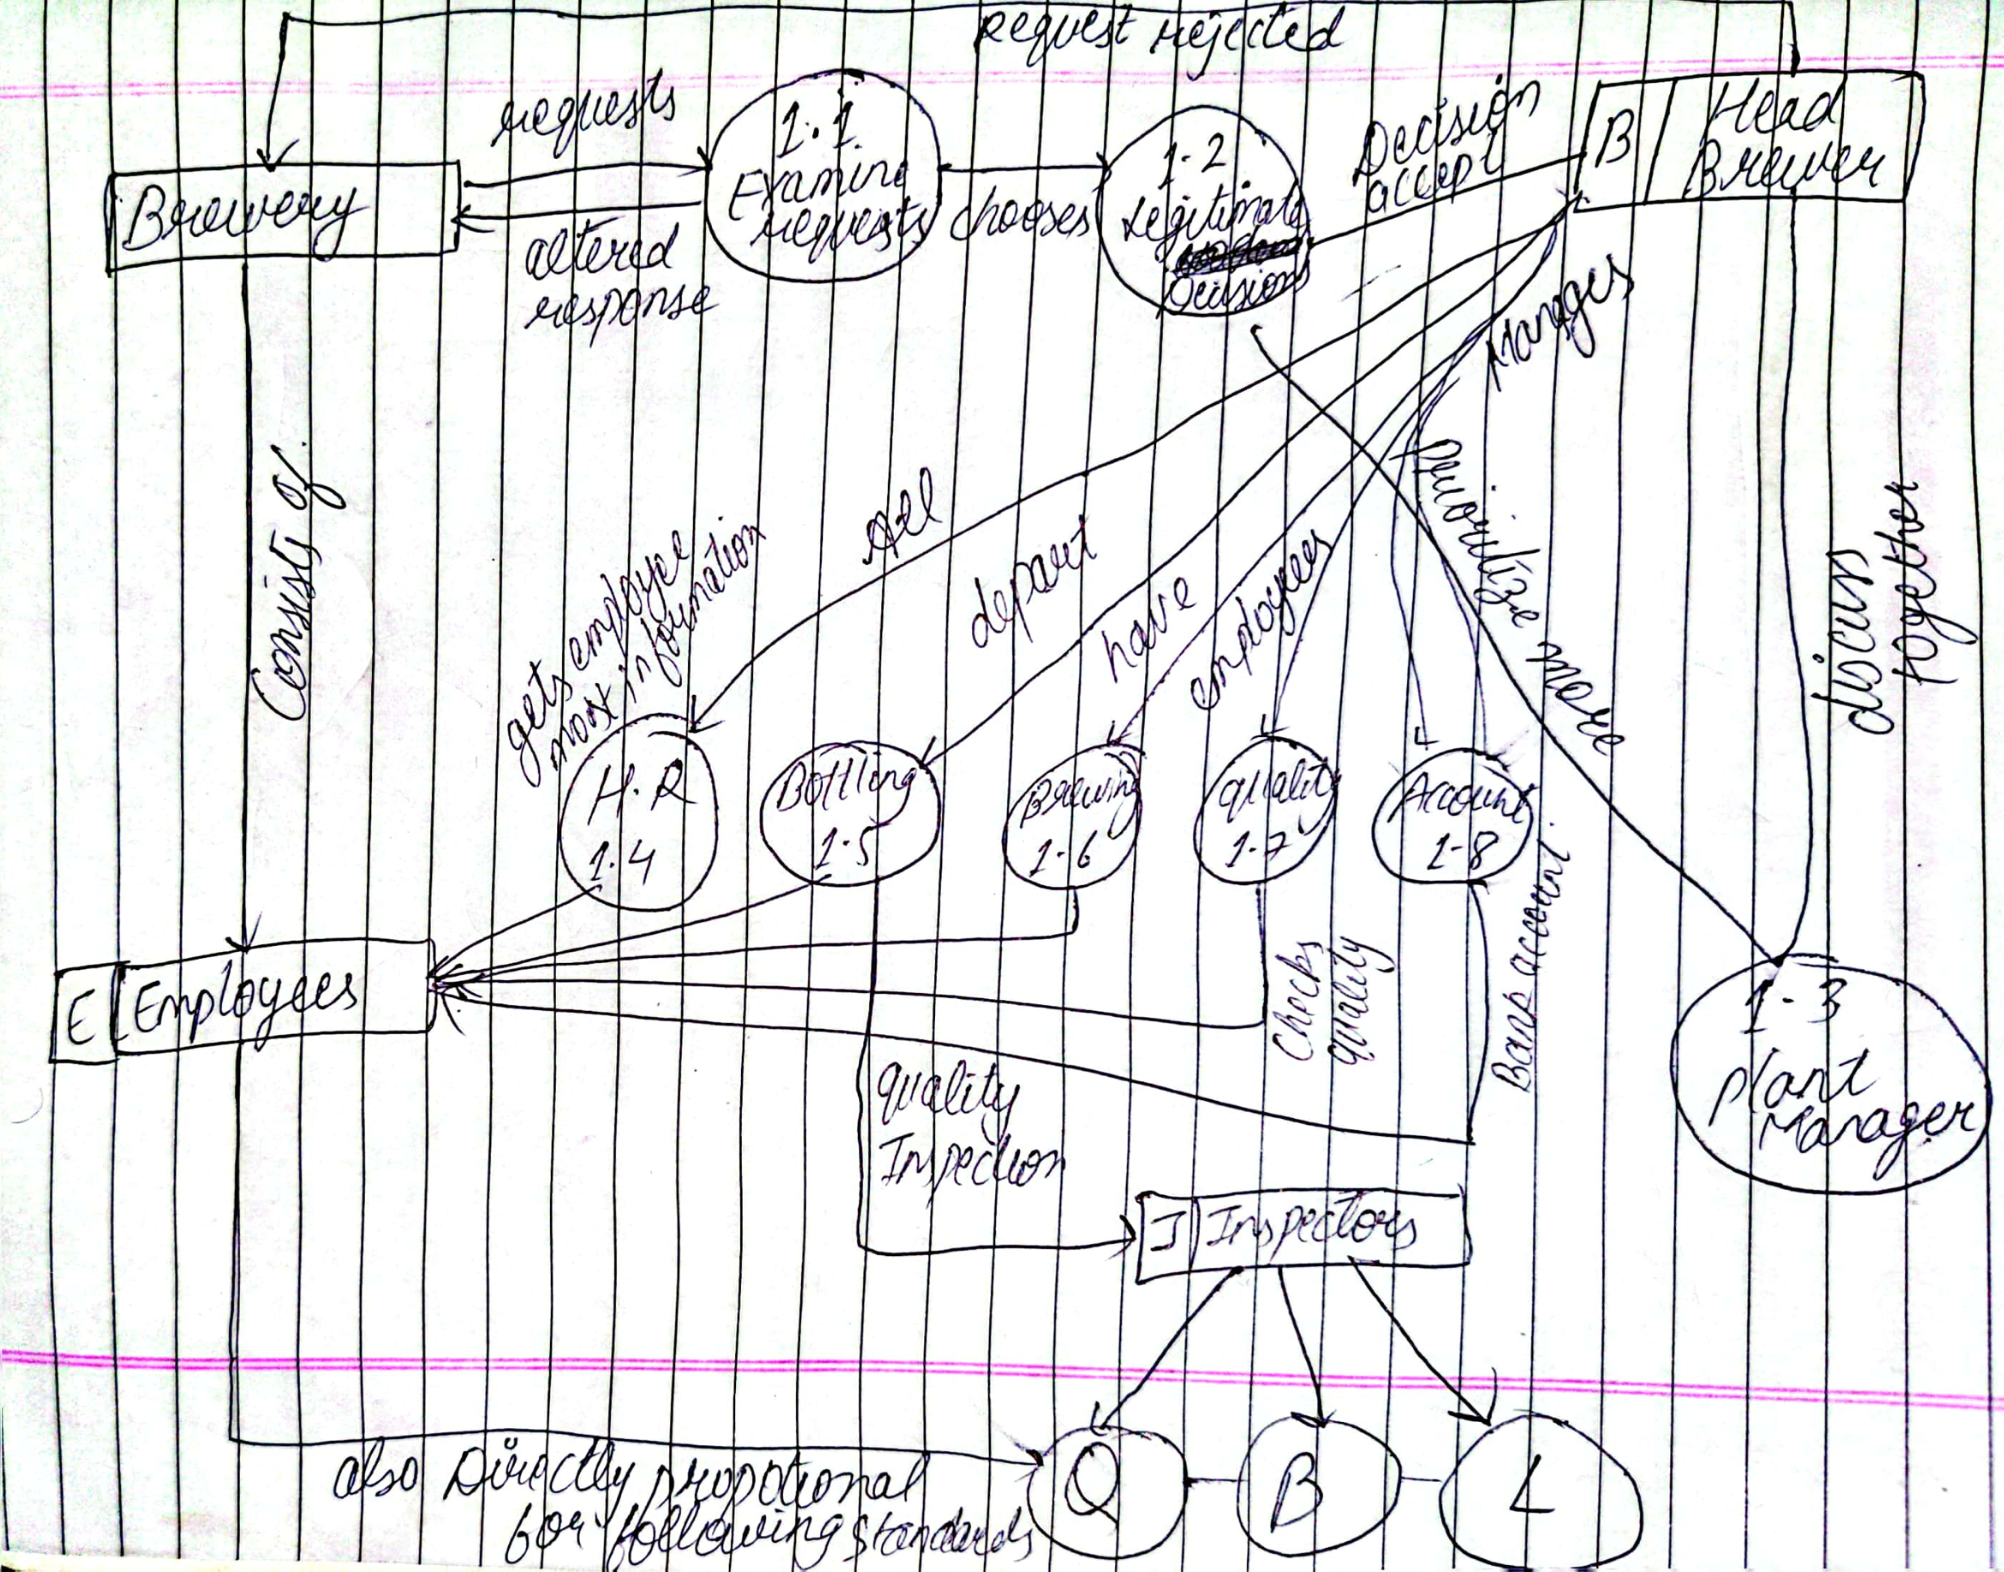 Request rejected
requests
1.1
Examine
requests
altered
response
chooses
1-2
Legitimate
Decisions
Decision
accept
B
Head
Brewer
Brewery
Manages
Consists of
gets employee
most information
All
depart
have
employees
Prioritize more
discuss
together
H.R
1.4
Bottling
1.5
Brewing
1-6
Quality
1-7
Account
1-8
Checks
quality
Bank account
E
Employees
1-3
Plant
Manager
Quality
Inspection
I
Inspectors
Q
B
L
also Directly propotional
for following standards